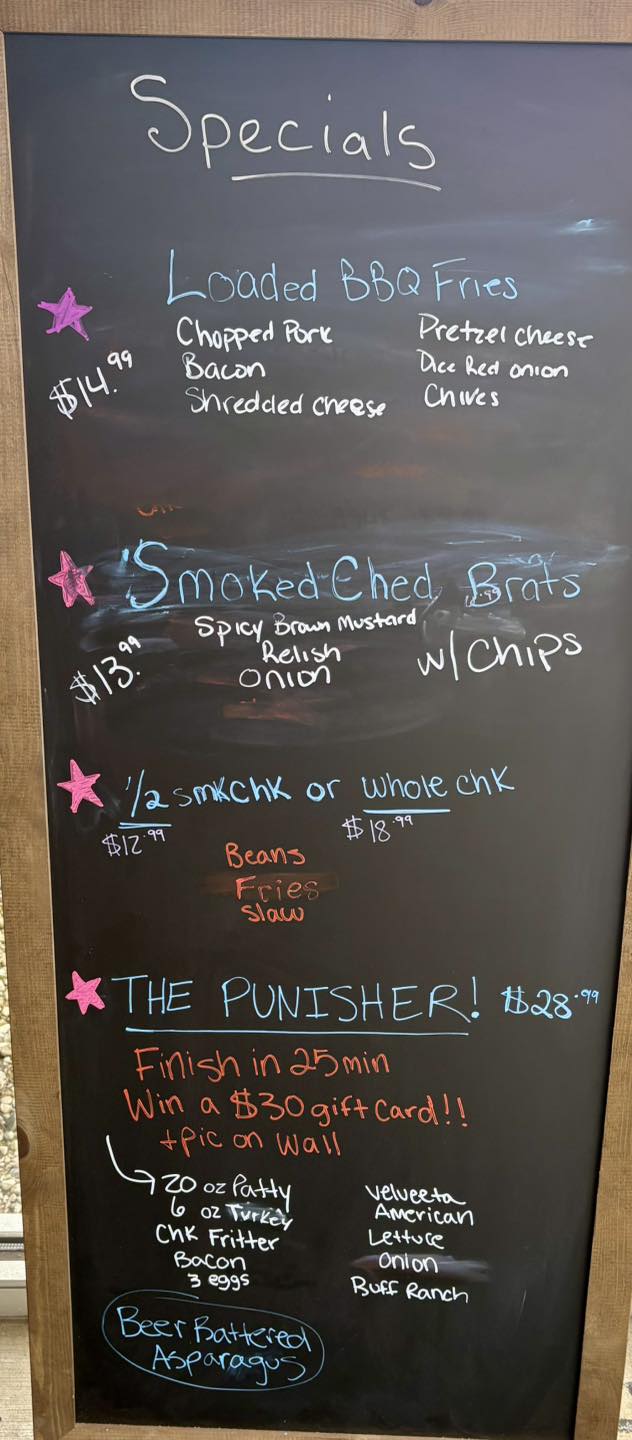 Specials
Loaded BBQ Fries
$14.99
Chopped Pork
Bacon
Shredded cheese
Pretzel cheese
Dice Red onion
Chives
Smoked Ched Brats
$13.99
Spicy Brown Mustard
Relish
Onion
w/ Chips
1/2 smkchk or whole chk
$12.99
$18.99
Beans
Fries
Slaw
THE PUNISHER! $28.99
Finish in 25 min
Win a $30 gift card!!
+pic on wall
20 oz Patty
6 oz Turkey
Chk Fritter
Bacon
3 eggs
Velveeta
American
Lettuce
Onion
Buff Ranch
Beer Battered
Asparagus